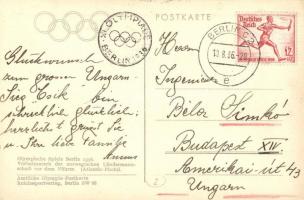 POSTKARTE
XI. OLYMPIADE
BERLIN 1936
BERLIN C
11.8.36
e
Deutsches Reich
12
Glückwunsch
zum grossen Ungarn
Sieg Csik! bin
schrecklich glücklich,
herzlichst grüsst Sie
u. Ihre liebe Familie
Herrn
Ingenieur
Béla Simkó
Budapest XIV.
Amerikai út 43
Ungarn
Olympische Spiele Berlin 1936.
Vorbeimarsch der norwegischen Ländermann-
schaft vor dem Führer. (Atlantic-Photo)
Amtliche Olympia-Postkarte
Reichssportverlag, Berlin SW 68